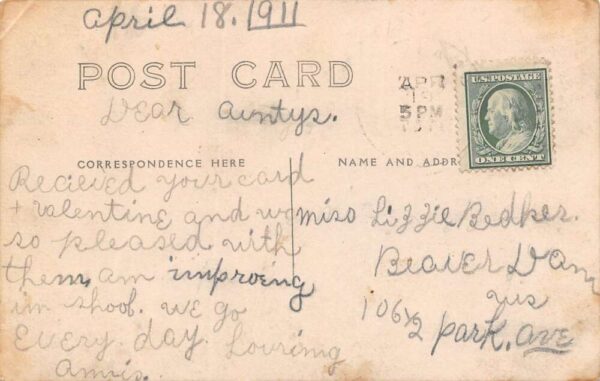 April 18. 1911
POST CARD
Dear Auntys.
APR
5 PM
U.S. POSTAGE
ONE CENT
CORRESPONDENCE HERE
NAME AND ADDR
Recieved your card
+ valentine and was
so pleased with
them, am improeing
in shool. we go
Every day. Lovring
Annis.
miss Lizzie Bedker.
Beaver Dam
wis
106 1/2 park. Ave